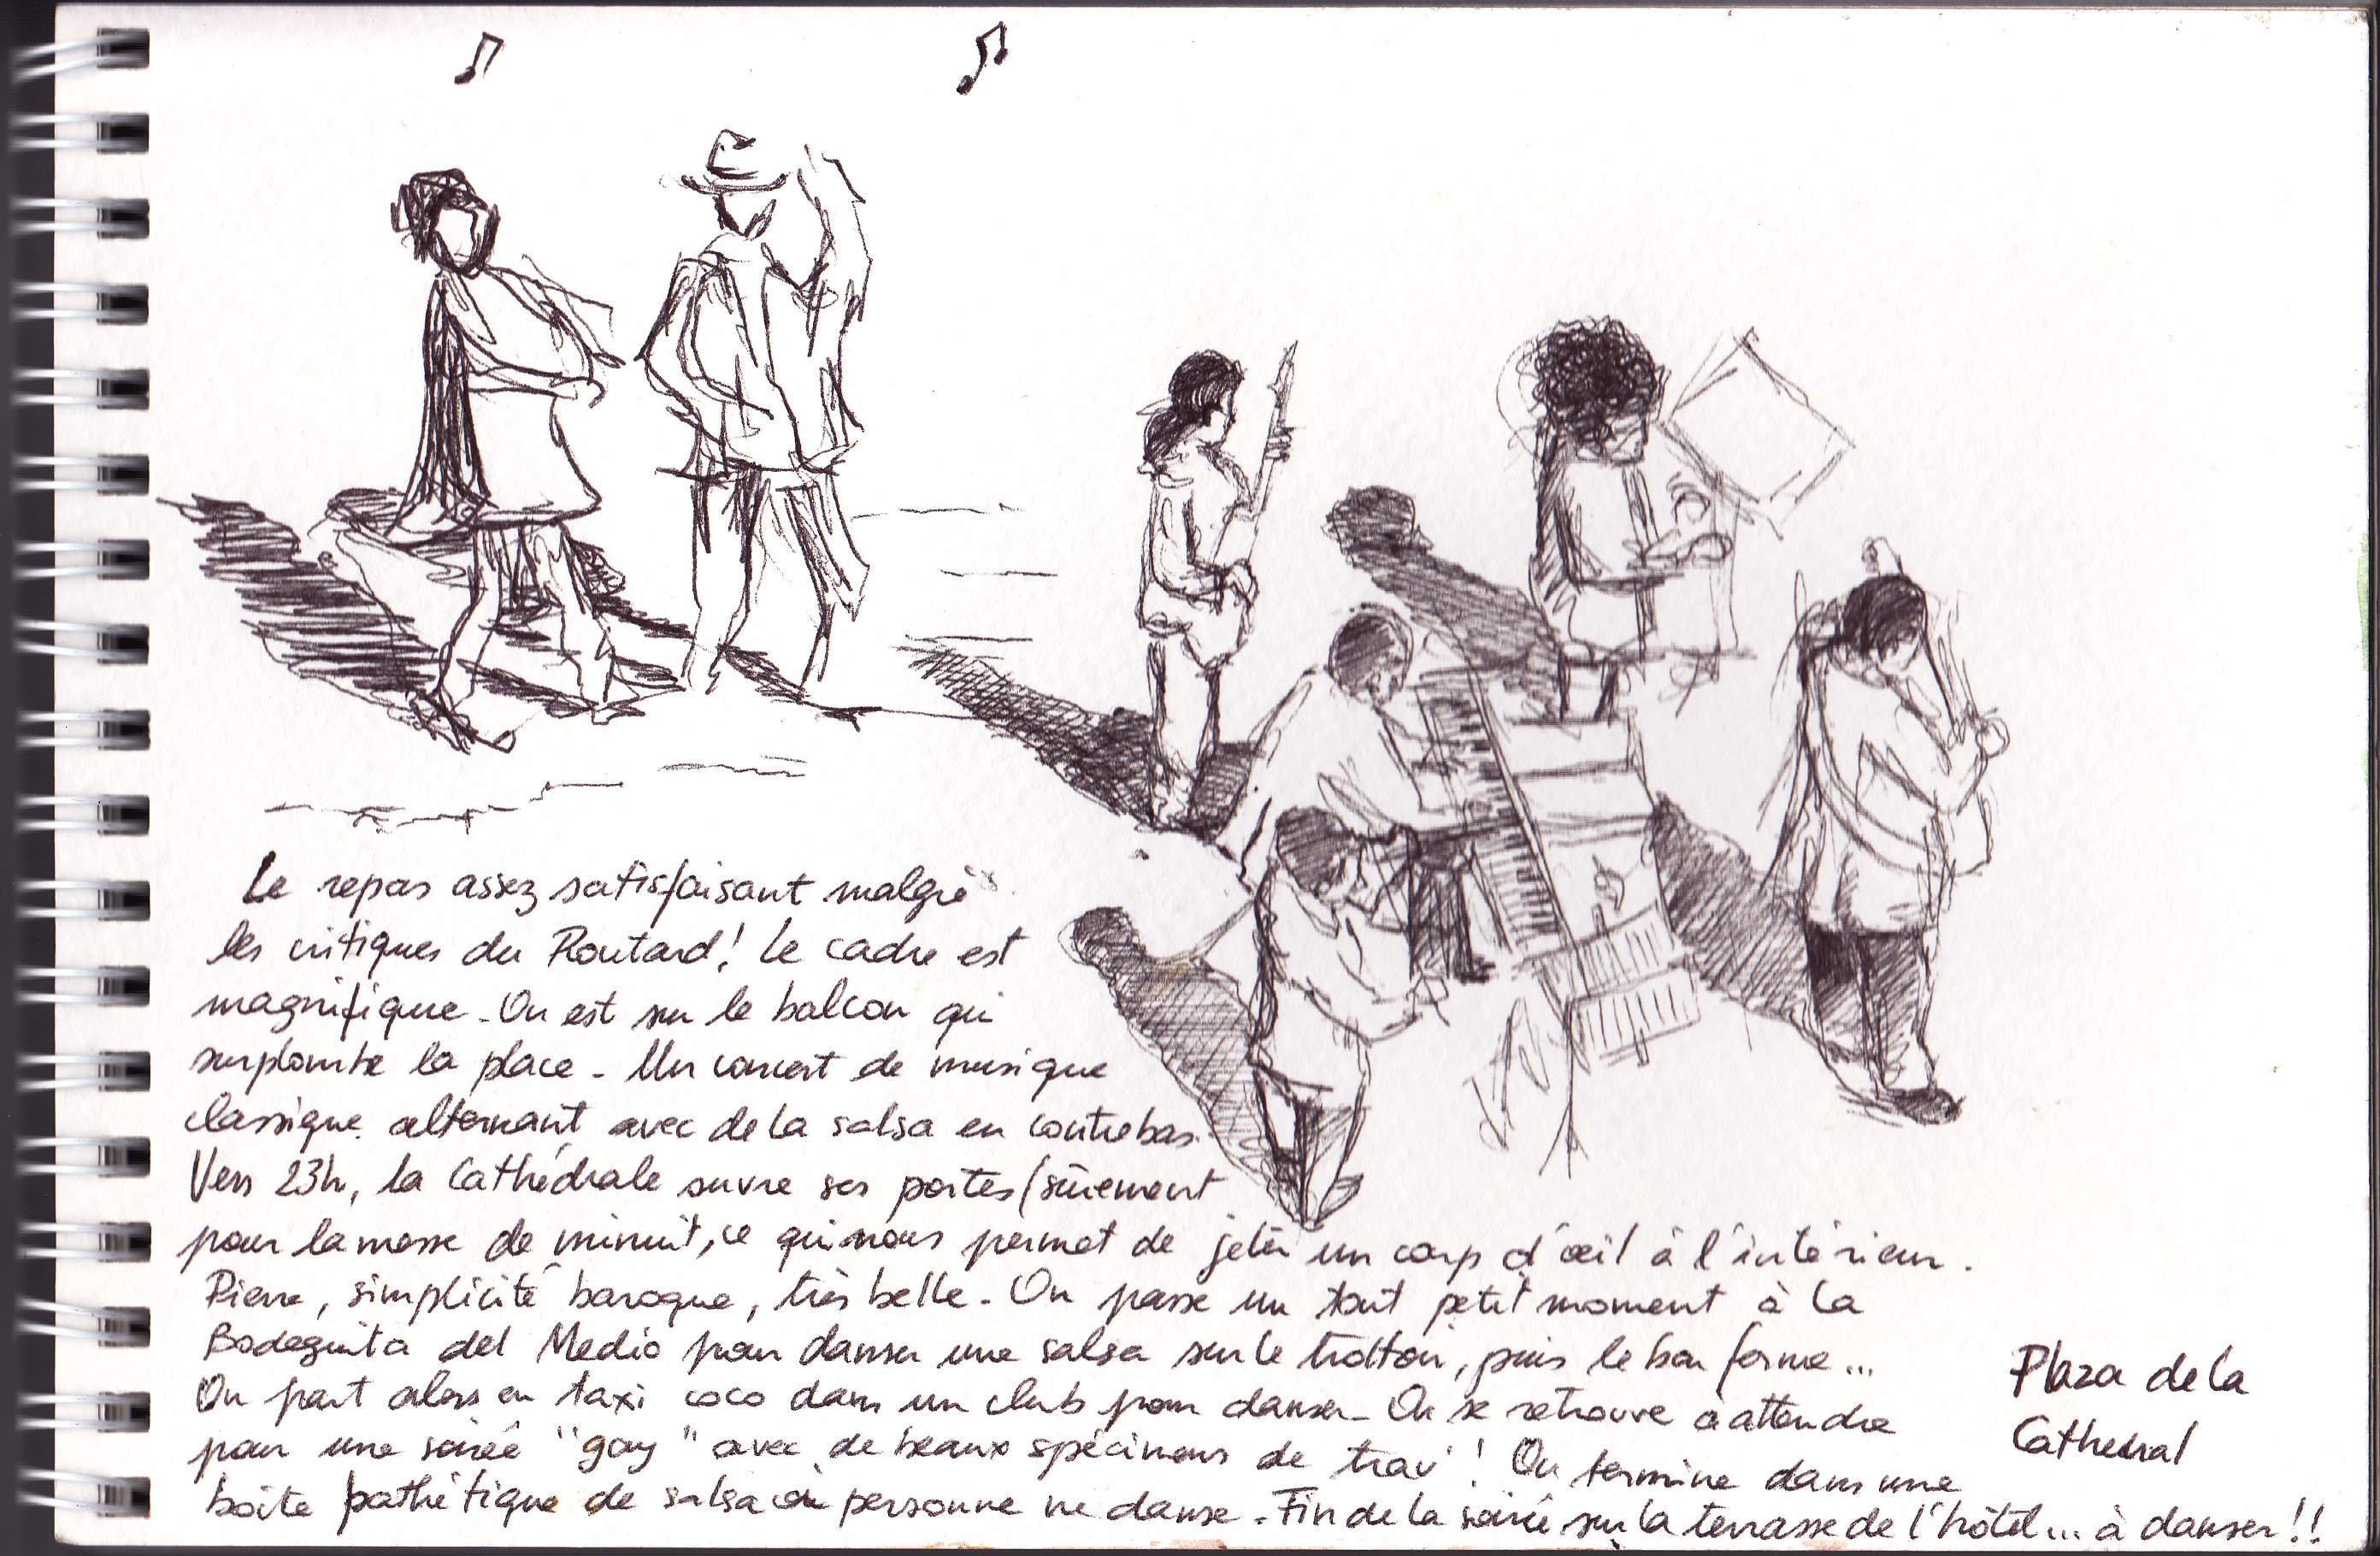 Le repas assez satisfaisant malgré
les critiques du Routard! Le cadre est
magnifique. On est sur le balcon qui
surplombe la place. Un concert de musique
classique alternant avec de la salsa en contrebas.
Vers 23h, la Cathédrale ouvre ses portes (sûrement
pour la messe de minuit, ce qui nous permet de jeter un coup d'œil à l'intérieur.
Pierre, simplicité baroque, très belle. On passe un tout petit moment à la
Bodeguita del Medio pour danser une salsa sur le trottoir, puis le bar ferme...
On part alors en taxi coco dans un club pour danser. On se retrouve à attendre
pour une soirée "gay" avec de beaux spécimens de trav'! On termine dans une
boîte pathétique de salsa où personne ne danse. Fin de la soirée sur la terrasse de l'hôtel... à danser!!
Plaza de la
Cathedral